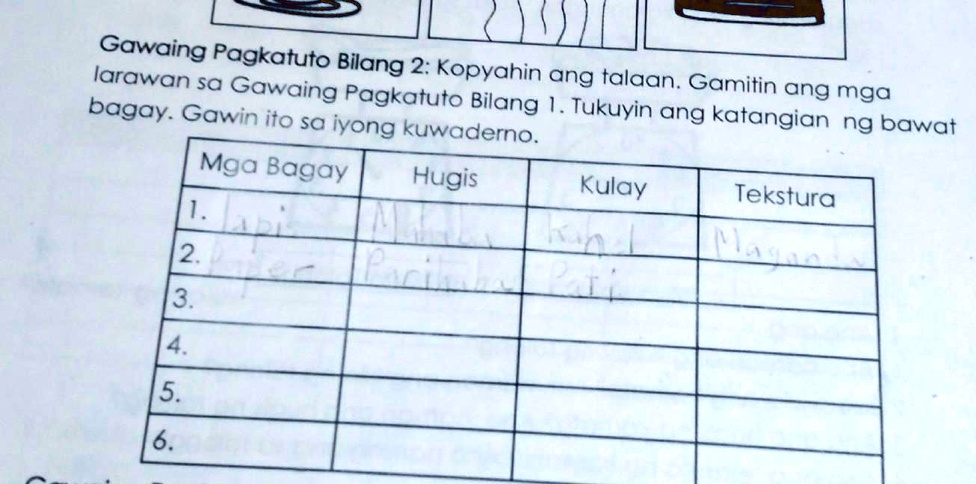 Gawaing Pagkatuto Bilang 2: Kopyahin ang talaan. Gamitin ang mga
larawan sa Gawaing Pagkatuto Bilang 1. Tukuyin ang katangian ng bawat
bagay. Gawin ito sa iyong kuwaderno.
Mga Bagay Hugis Kulay Tekstura
1. lapis Maganda
2. Paper
3.
4.
5.
6.